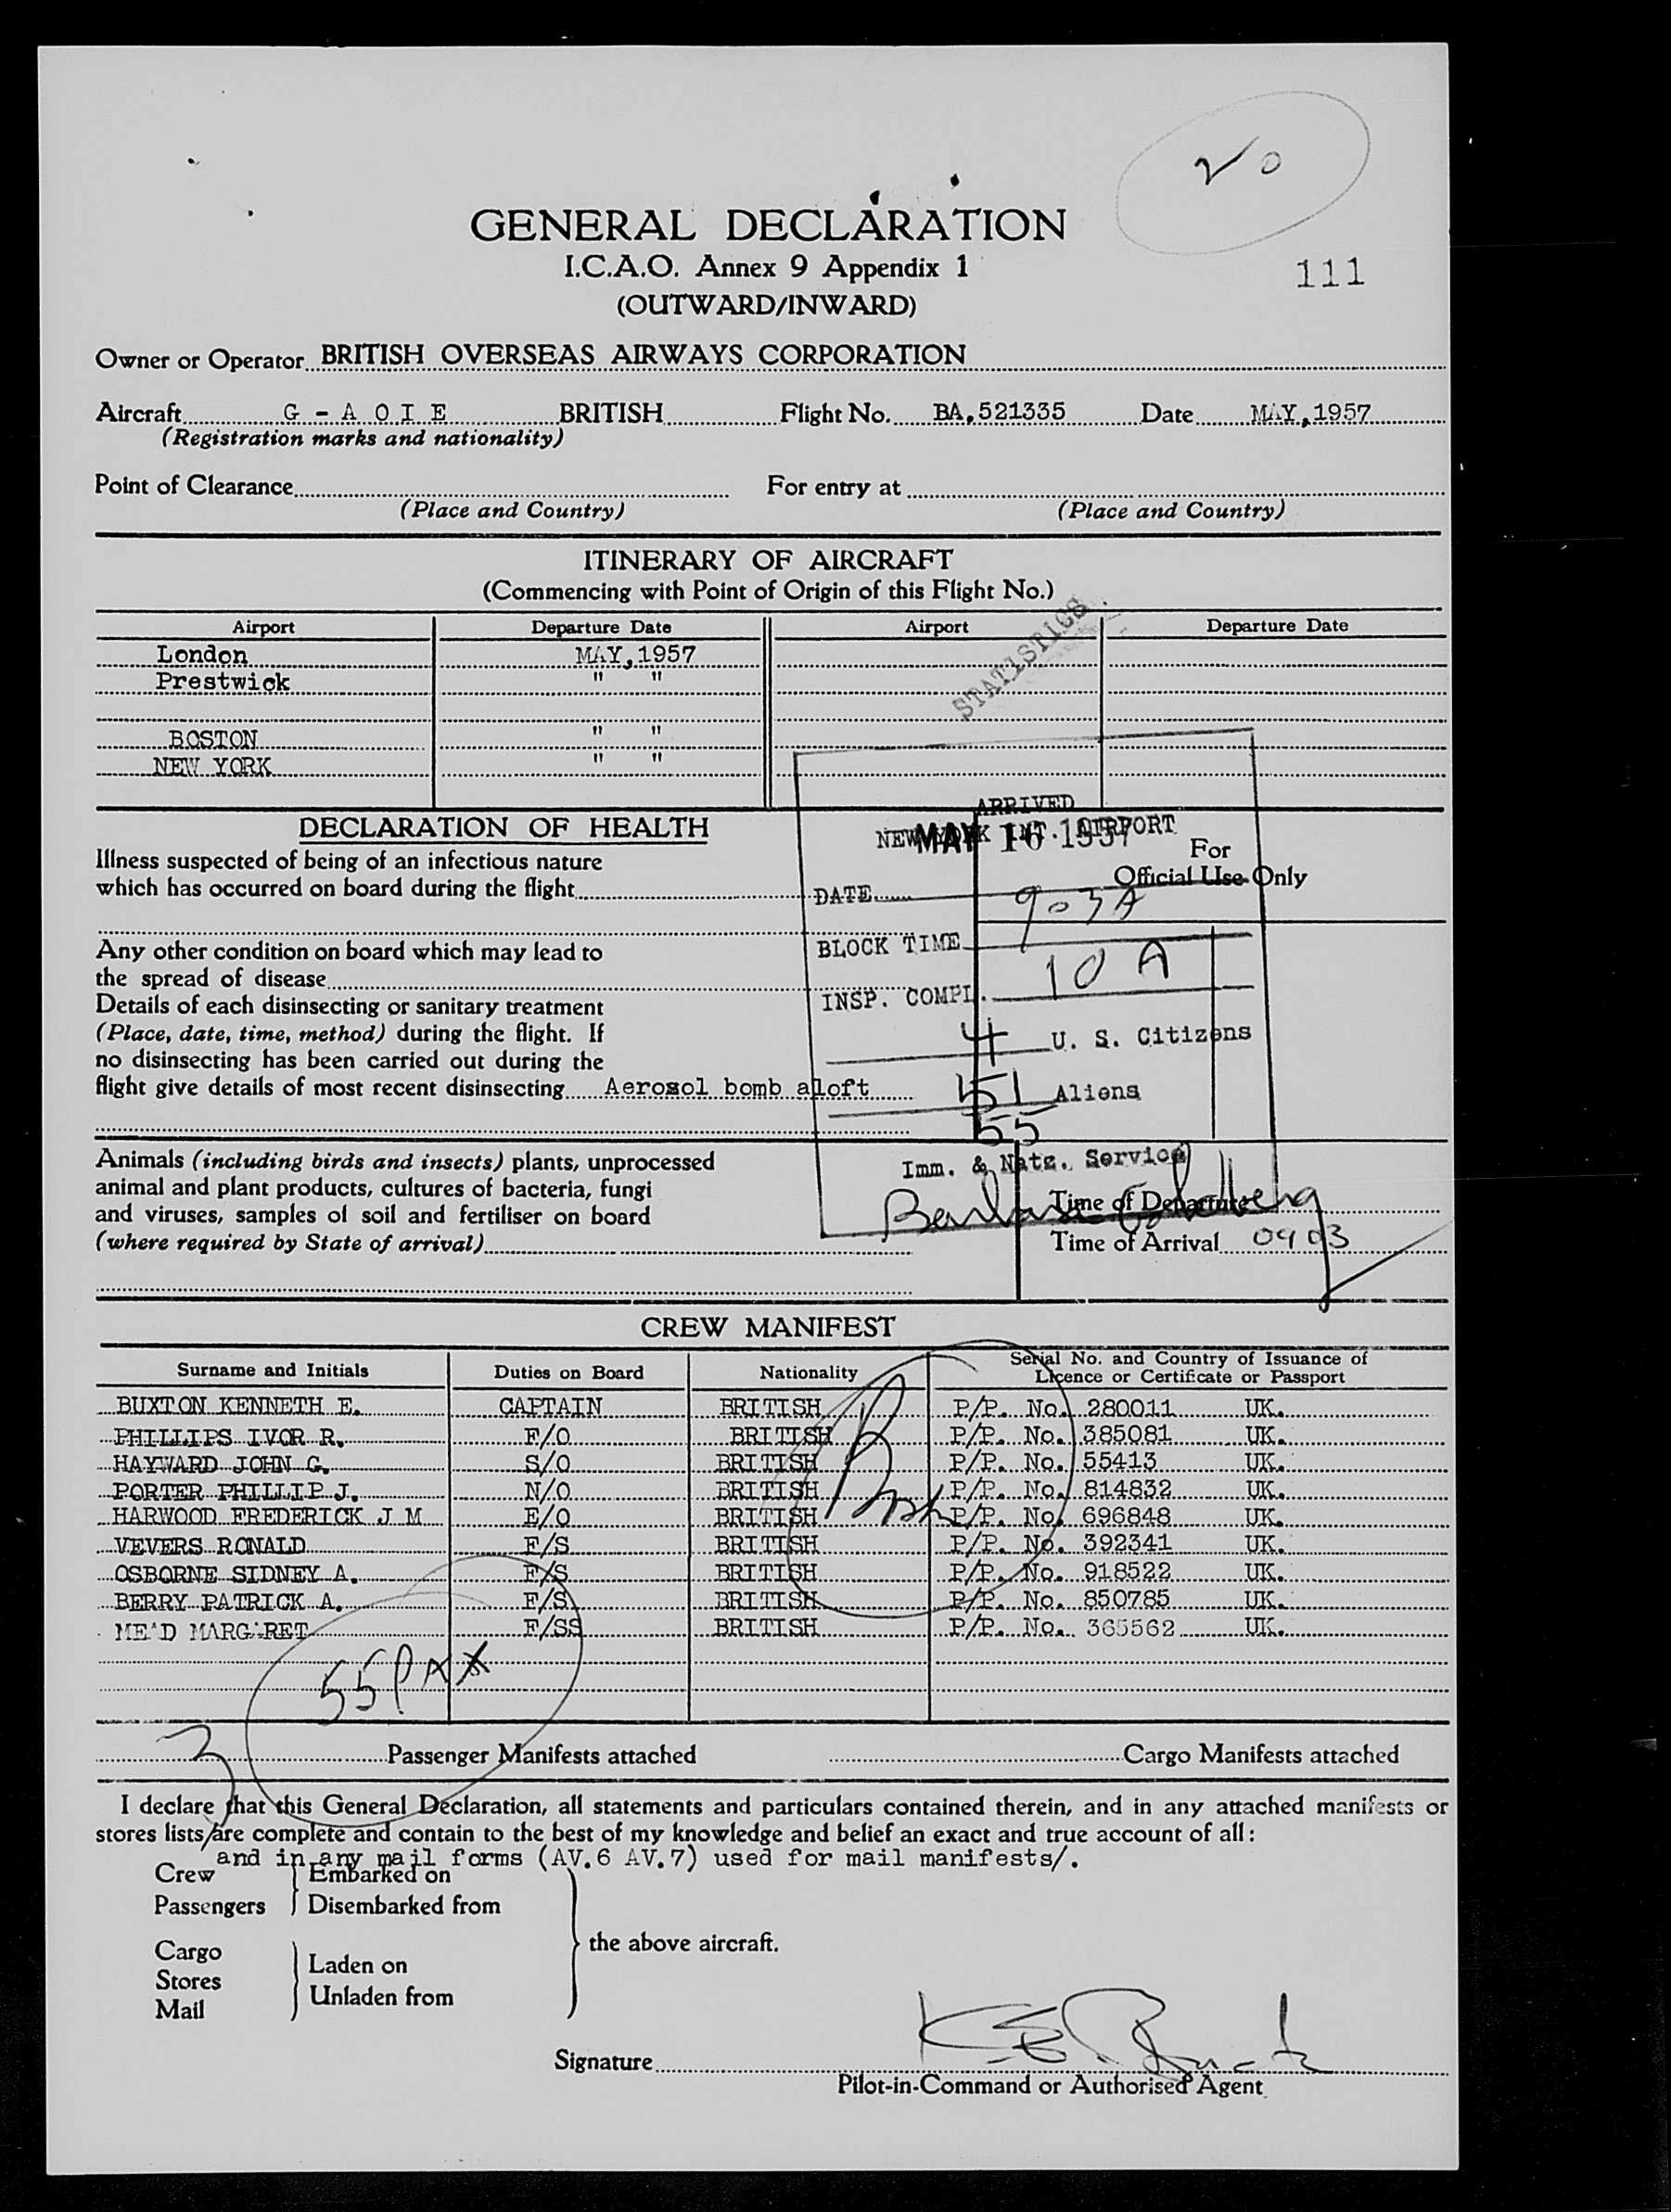 20
GENERAL DECLARATION
I.C.A.O. Annex 9 Appendix 1
111
(OUTWARD/INWARD)
Owner or Operator BRITISH OVERSEAS AIRWAYS CORPORATION
Aircraft G - A O I E BRITISH Flight No. BA.521335 Date MAY,1957
(Registration marks and nationality)
Point of Clearance For entry at
(Place and Country) (Place and Country)
ITINERARY OF AIRCRAFT
(Commencing with Point of Origin of this Flight No.)
STATISTICS
Airport Departure Date Airport Departure Date
London MAY,1957
Prestwick " "
BOSTON " "
NEW YORK " "
ARRIVED
NEW YORK INT. AIRPORT
MAY 16 1957
DECLARATION OF HEALTH
For
Official Use Only
Illness suspected of being of an infectious nature
which has occurred on board during the flight
DATE
903A
BLOCK TIME
Any other condition on board which may lead to
the spread of disease
10 A
INSP. COMPL.
Details of each disinsecting or sanitary treatment
(Place, date, time, method) during the flight. If
no disinsecting has been carried out during the
flight give details of most recent disinsecting Aerosol bomb aloft
4 U. S. Citizens
51 Aliens
55
Imm. & Natz. Service
Animals (including birds and insects) plants, unprocessed
animal and plant products, cultures of bacteria, fungi
and viruses, samples of soil and fertiliser on board
(where required by State of arrival)
Time of Departure
Time of Arrival 0903
CREW MANIFEST
Surname and Initials Duties on Board Nationality Serial No. and Country of Issuance of
Licence or Certificate or Passport
BUXTON KENNETH E. CAPTAIN BRITISH P/P. No. 280011 UK.
PHILLIPS IVOR R. F/O BRITISH P/P. No. 385081 UK.
HAYWARD JOHN G. S/O BRITISH P/P. No. 55413 UK.
PORTER PHILLIP J. N/O BRITISH P/P. No. 814832 UK.
HARWOOD FREDERICK J M E/O BRITISH P/P. No. 696848 UK.
VEVERS RONALD F/S BRITISH P/P. No. 392341 UK.
OSBORNE SIDNEY A. F/S BRITISH P/P. No. 918522 UK.
BERRY PATRICK A. F/S BRITISH P/P. No. 850785 UK.
MEAD MARGARET F/SS BRITISH P/P. No. 365562 UK.
55 PAX
3 Passenger Manifests attached Cargo Manifests attached
I declare that this General Declaration, all statements and particulars contained therein, and in any attached manifests or
stores lists/are complete and contain to the best of my knowledge and belief an exact and true account of all:
and in any mail forms (AV.6 AV.7) used for mail manifests/.
Crew Embarked on
Passengers Disembarked from
the above aircraft.
Cargo
Stores Laden on
Mail Unladen from
Signature
Pilot-in-Command or Authorised Agent